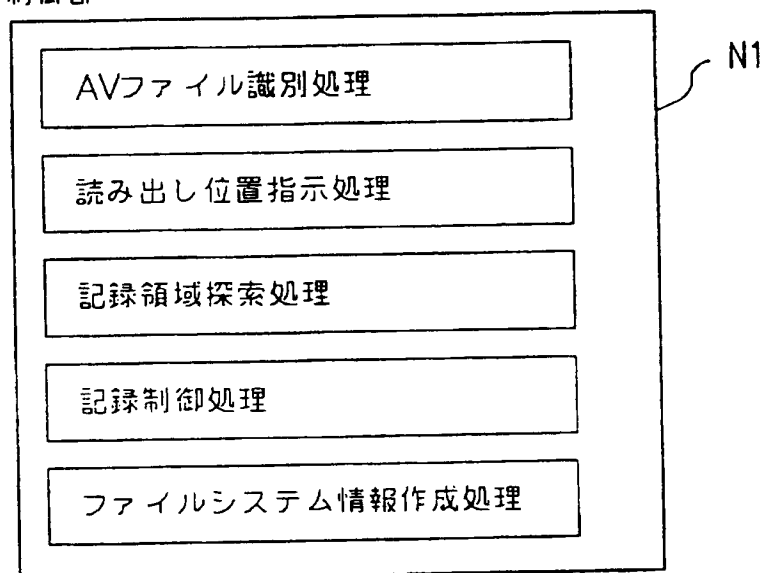 AVファイル識別処理
N1
読み出し位置指示処理
記録領域探索処理
記録制御処理
ファイルシステム情報作成処理